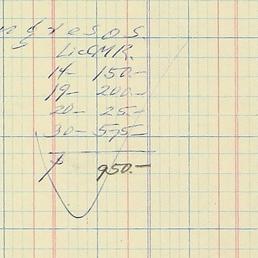 S.O.S.
14- 150.-
19- 200.-
20- 25.-
30- 575.-
7 950.-